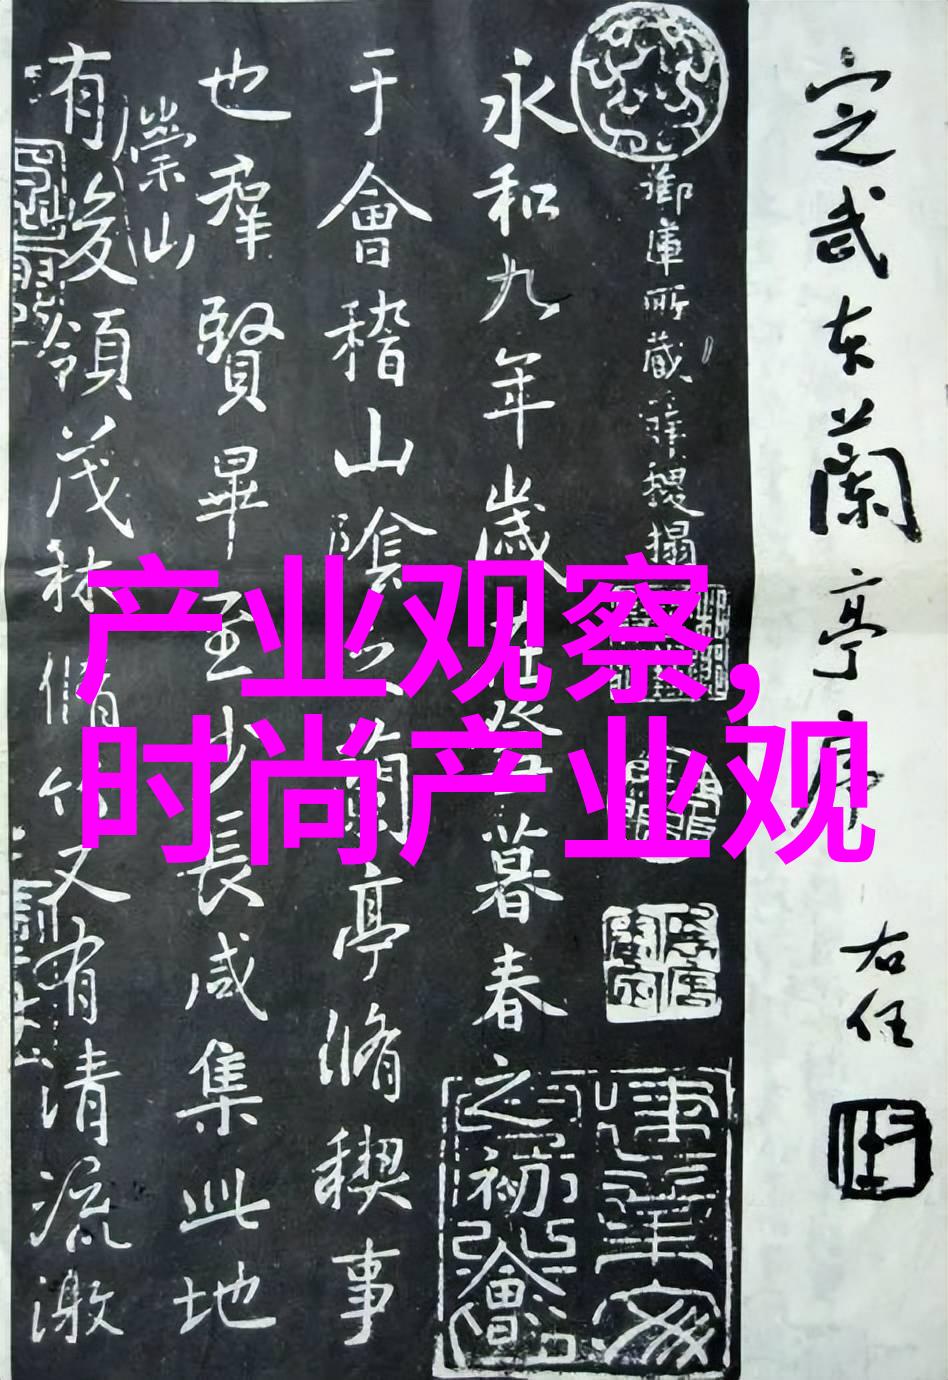 产业观察,
时尚产业观
定武本蘭亭序
右任
御庫所藏薛稷搨
永和九年歲在癸丑暮春之初會
于會稽山陰之蘭亭脩禊事
也羣賢畢至少長咸集此地
崇山
有峻領茂林脩竹又有清流激